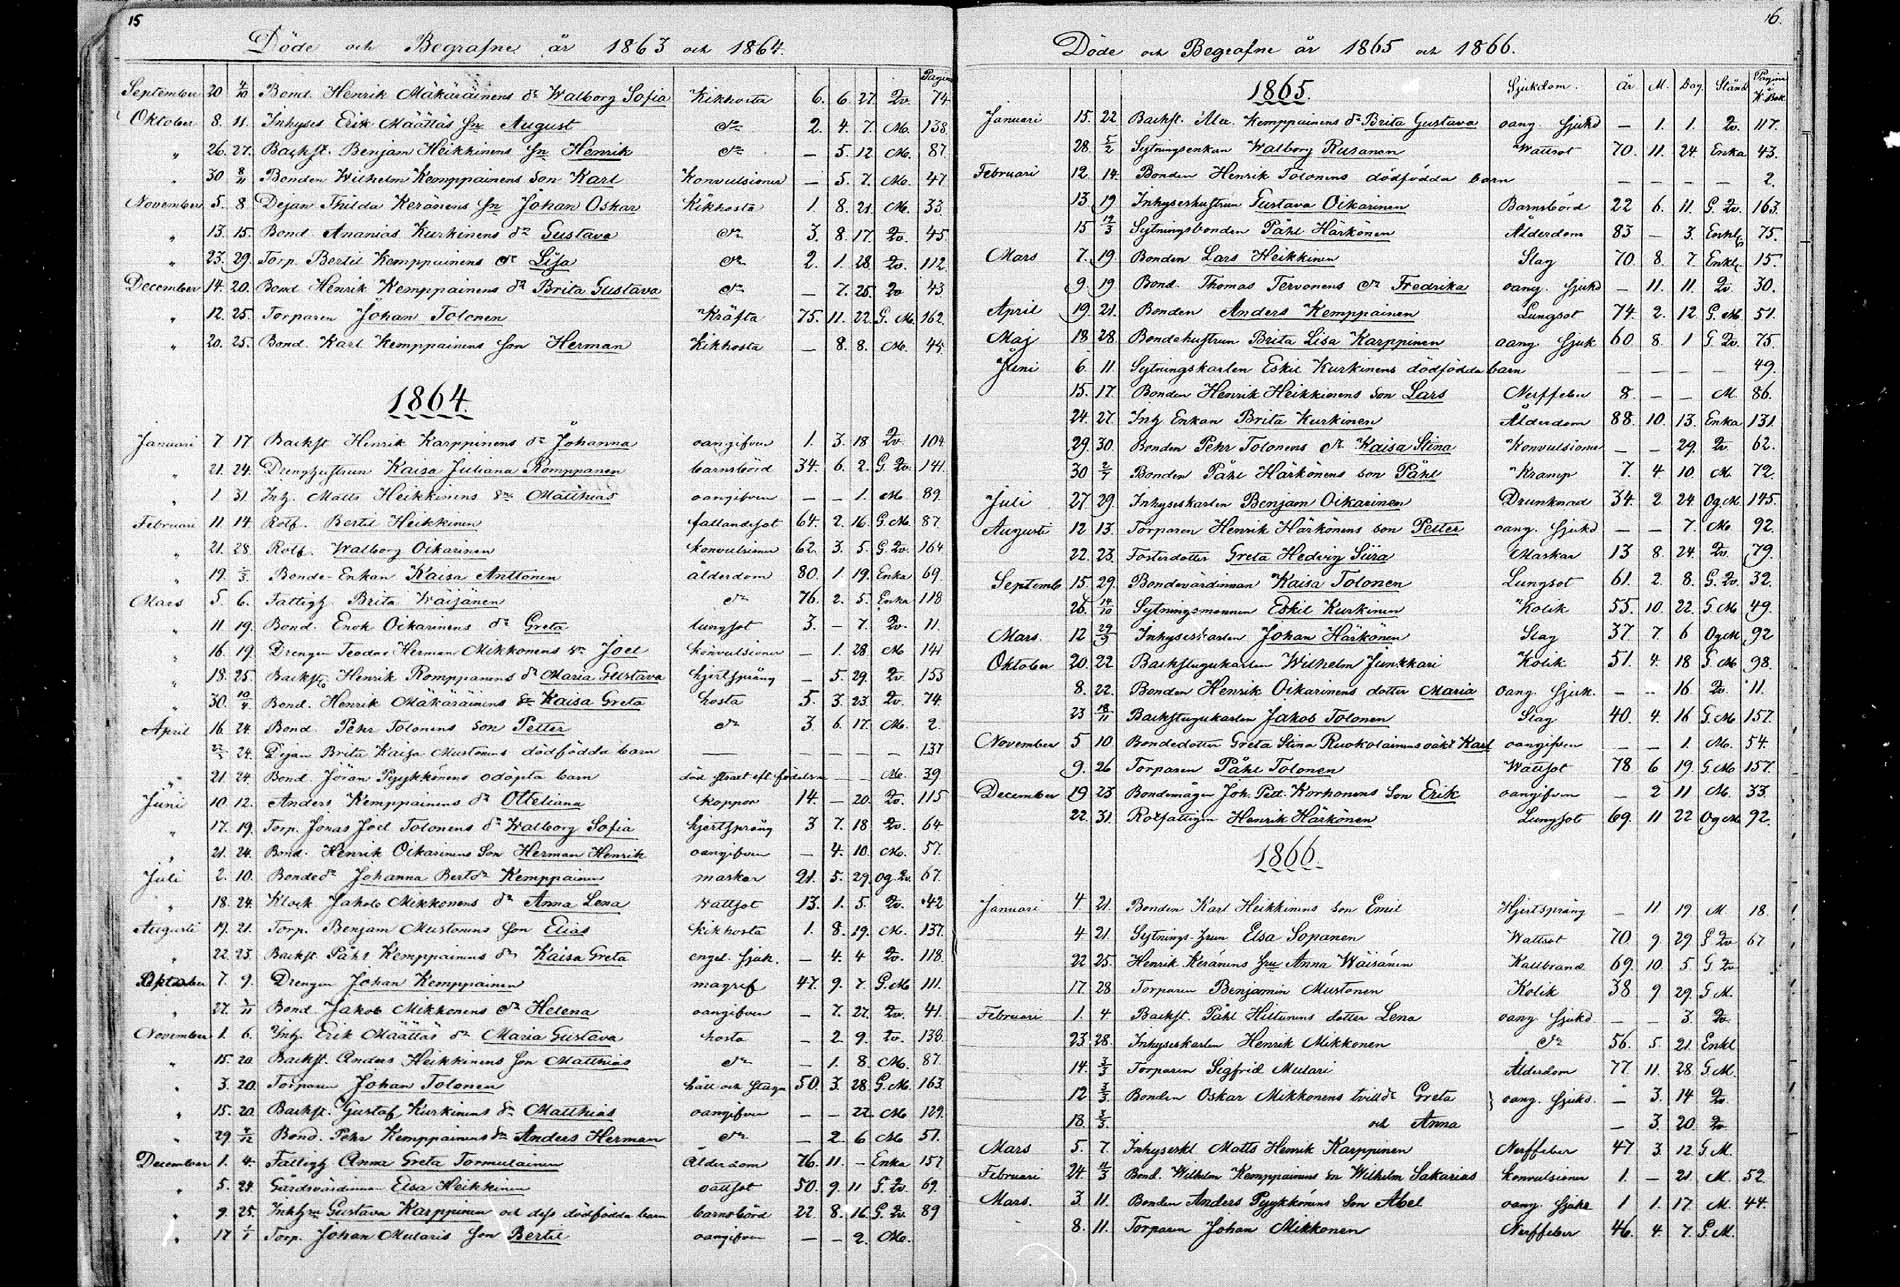 15
Döde och Begrafne år 1863 och 1864.
Pagina
September 20 4/10 Bond. Henrik Mäkäräinens dr Walborg Sofia Kikhosta 6. 6. 27. Qv. 74
Oktober 8. 11. Inhyses Erik Määttäs sn August dr 2. 4. 7. M. 138.
" 26. 27. Backst. Benjam Heikkinens sn Henrik dr — 5. 12 M. 87.
" 30 8/11 Bonden Wilhelm Kemppainens son Karl Konvulsioner — 5. 7. M. 47
November 5. 8. Dejan Thilda Keränens sn Johan Oskar Kikhosta 1. 8. 21. M. 33.
" 13. 15. Bond. Ananias Kurkinens dr Gustava dr 3. 8. 17. Qv. 45.
" 23. 29. Torp. Bertil Kemppainens dr Lisa dr 2. 1. 28 Qv. 112.
December 14. 20. Bond Henrik Kemppainens dr Brita Gustava dr — 7. 25. Qv 43
" 12. 25. Torparen Johan Tolonen Kräfta 75. 11. 22. G. M. 162.
" 20. 25. Bond. Karl Kemppainens son Herman Kikhosta — 8. 8. M. 45.
1864.
Januari 7 17. Backst Henrik Karppinens dr Johanna oangifven 1. 3. 18 Qv. 104
" 21. 24. Drenghustrun Kaisa Juliana Romppanen barnsbörd 34. 6. 2. G. Qv. 141.
" 1 31. Inh. Matts Heikkinens sn Matthias oangifven — — 1. M. 89.
Februari 11. 14. Rotf. Bertil Heikkinen fallandesot 64. 2. 16. G. M. 87
" 21. 28. Rotf. Walborg Oikarinen konvulsioner 62. 3. 5. G. Qv. 164
" 19. Bonde-Enkan Kaisa Anttonen ålderdom 80. 1. 19. Enka 69
Mars 5. 6. Fattigh Brita Wäisänen dr 76. 2. 5. Enka 118
" 11 19. Bond. Enok Oikarinens dr Greta lungsot 3. — 7. Qv. 11.
" 16. 19. Drengen Teodor Herman Mikkonens sn Joel konvulsioner — 1. 28 M 141
" 18. 25. Backst. Henrik Romppanens dr Maria Gustava hjertsprång — 5. 29. Qv. 153
" 30. 10/4 Bond. Henrik Mäkäräinens dr Kaisa Greta hosta 5. 3. 23. Qv. 74.
April 16. 24. Bond Pehr Tolonens son Petter dr 3 6. 17. M. 2.
" 24. Pejan Brita Kaisa Mustonens dödfödda barn — — — — — 137
" 21. 24. Bond. Jöran Pyykkönens odöpta barn död strax eft. födelsen — — M. 39
Juni 10. 12. Anders Kemppainens dr Otteliana koppor 14. — 20. Qv. 115
" 17. 19. Torp. Jonas Joel Tolonens dr Walborg Sofia hjertsprång 3 7. 18 Qv. 64
" 21. 24. Bond. Henrik Oikarinens son Herman Henrik oangifven — 4. 10. M. 57.
Juli 2. 10. Bonded. Johanna Bertdr Kemppainen maskar 21. 5. 29. Og Qv. 67.
" 18. 24. Klock Jakob Mikkonens dr Anna Lena vattsot 13. 1. 5. Qv. 42
Augusti 19. 21. Torp. Benjam Mustonens son Elias kikhosta 1. 8. 19. M. 137.
" 22. 23. Backst. Påhl Kemppainens dr Kaisa Greta engel. sjuk. — 4. 4 Qv. 118.
Oktober 7. 9. Drengen Johan Kemppainen magref 47. 9. 7. G. M 111.
" 27. Bond Jakob Mikkonens dr Helena oangifven — 7. 27. Qv. 41.
November 1. 6. Inh. Erik Määttäs dr Maria Gustava hosta — 2 9. Qv. 138.
" 15. 20 Backst. Anders Heikkinens son Matthias dr — 1. 8 M. 87.
" 3. 20. Torparen Johan Tolonen håll och styng 50. 3. 28 G. M 163.
" 15. 20. Backst. Gustaf Kurkinens sn Matthias oangifven — — 22. M 129.
" 29. 4/12 Bond. Pehr Kemppainens sn Anders Herman dr — 2. 6 M 51.
December 1. 4. Fattigh Anna Greta Tormulainen Ålderdom 76. 11. — Enka 157
" 5. 24. Gårdsvärdinnan Elsa Heikkinen vattsot 50. 9. 11 G. Qv. 69.
" 9. 25. Inhhn Gustava Karppinen och dess dödfödda barn barnsbörd 22 8. 16. G. Qv. 89
" 17 1/1 Torp. Johan Mularis son Bertil oangifven — — 2. M.
16.
Döde och Begrafne år 1865 och 1866.
1865. Sjukdom. År M. Dag. Stånd Pagina K. Bok.
Januari 15. 22 Backst. Ma. Kemppainens dr Brita Gustava oang. sjukd — 1. 1. Qv. 117.
28. 5/2 Sytningsenkan Walborg Rusanen Wattsot 70. 11. 24 Enka 43.
Februari 12. 14. Bonden Henrik Tolonens dödfödda barn — — — — 2.
13 19 Inhyseshustrun Gustava Oikarinen Barnsbörd 22 6. 11. G. Qv. 163.
15 12/3 Sytningsbonden Påhl Härkönen Ålderdom 83 — 3. Enkl. 75.
Mars 7. 19. Bonden Lars Heikkinen Slag 70. 8. 7. Enkl. 15.
9. 19 Bond. Thomas Tervonens dr Fredrika oang. sjukd — 11. 11. Qv. 30.
April 19. 21. Bonden Anders Kemppainen Lungsot 74. 2. 12 G. M. 51.
Maj 18 28. Bondehustrun Brita Lisa Karppinen oang. sjuk 60 8. 1 G Qv. 75.
Juni 6. 11. Sytningskarlen Eskil Kurkinens dödfödda barn — — — — 49.
15. 17. Bonden Henrik Heikkinens son Lars Nerffeber 8. — — M 86.
24. 27. Inh Enkan Brita Kurkinen Ålderdom 88. 10. 13. Enka 131.
29. 30. Bonden Pehr Tolonens dr Kaisa Stina Konvulsioner — — 29. Qv 62.
30 2/7 Bonden Påhl Härkönens son Påhl Kramp 7. 4 10. M. 72.
Juli 27 29. Inhyseskarlen Benjam Oikarinen Drunknad 34. 2 24 Og M. 145.
Augusti 12 13. Torparen Henrik Härkönens son Petter oang. sjukd — — 7. M. 92.
22. 23. Fosterdotter Greta Hedvig Sura Maskar 13 8. 24 Qv. 79.
Septemb 15. 29. Bondevärdinnan Kaisa Tolonen Lungsot 61. 2. 8. G. Qv. 32.
26. 14/10 Sytningsmannen Eskil Kurkinen Kolik 55. 10. 22 G. M 49.
Mars. 12 29/3 Inhyseskarlen Johan Härkönen Slag 37. 7. 6 Og M 92
Oktober 20. 22 Backstugukarlen Wilhelm Junkkari Kolik 51. 4. 18 G M 98.
8. 22. Bonden Henrik Oikarinens dotter Maria oang. sjuk. — — 16. Qv. 11.
23 18/11 Backstugukarlen Jakob Tolonen Slag 40. 4. 16 G. M 157.
November 5 10 Bondedotter Greta Stina Ruokolainens oäkt Karl oangifven — — 1. M. 54.
9. 26 Torparen Påhl Tolonen Wattsot 78 6 19 G M 157.
December 19 23 Bondemågen Joh. Pett. Korhonens son Erik oangifven — 2 11 M. 33
22. 31 Rotfattigen Henrik Härkönen Lungsot 69. 11 22 Og M 92.
1866.
Januari 4 21. Bonden Karl Heikkinens son Emil Hjertsprång — 11 19 M. 18.
4. 21. Sytnings-hrun Elsa Sopanen Wattsot 70 9 29. G Qv 67
22 25. Henrik Keränens hru Anna Wäisänen Kallbrand 69. 10. 5 G. Qv
17. 28 Torparen Benjamin Mustonen Kolik 38 9 29. G M.
Februari 1. 4 Backst. Påhl Hiltunens dotter Lena oang sjukd — — 3. Qv.
23. 28. Inhyseskarlen Henrik Mikkonen dr 56. 5. 21. Enkl
14. 3/3 Torparen Sigfrid Mulari Ålderdom 77. 11. 28 G. M.
12 3/3 Bonden Oskar Mikkonens tvilldr Greta } oang. sjukd. — 3. 14 Qv
18. 3/3. och Anna — 3. 20. Qv
Mars 5. 7. Inhyserkl Matts Henrik Karppinen Nerffeber 47 3. 12 G M.
Februari 24. Bond. Wilhelm Kemppainens sn Wilhelm Sakarias konvulsioner 1. — 21. M. 52.
Mars. 3 11. Bonden Anders Pyykkönens son Abel oang. sjukd 1 1. 17. M. 44.
8. 11. Torparen Johan Mikkonen Nerffeber 46. 4. 7. G. M.